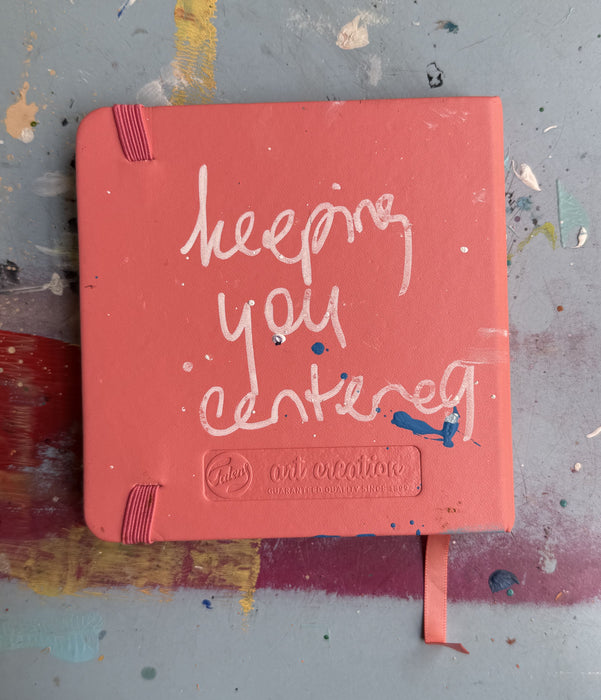 keeping
you
centered
Talens art creation
GUARANTEED QUALITY SINCE 1899